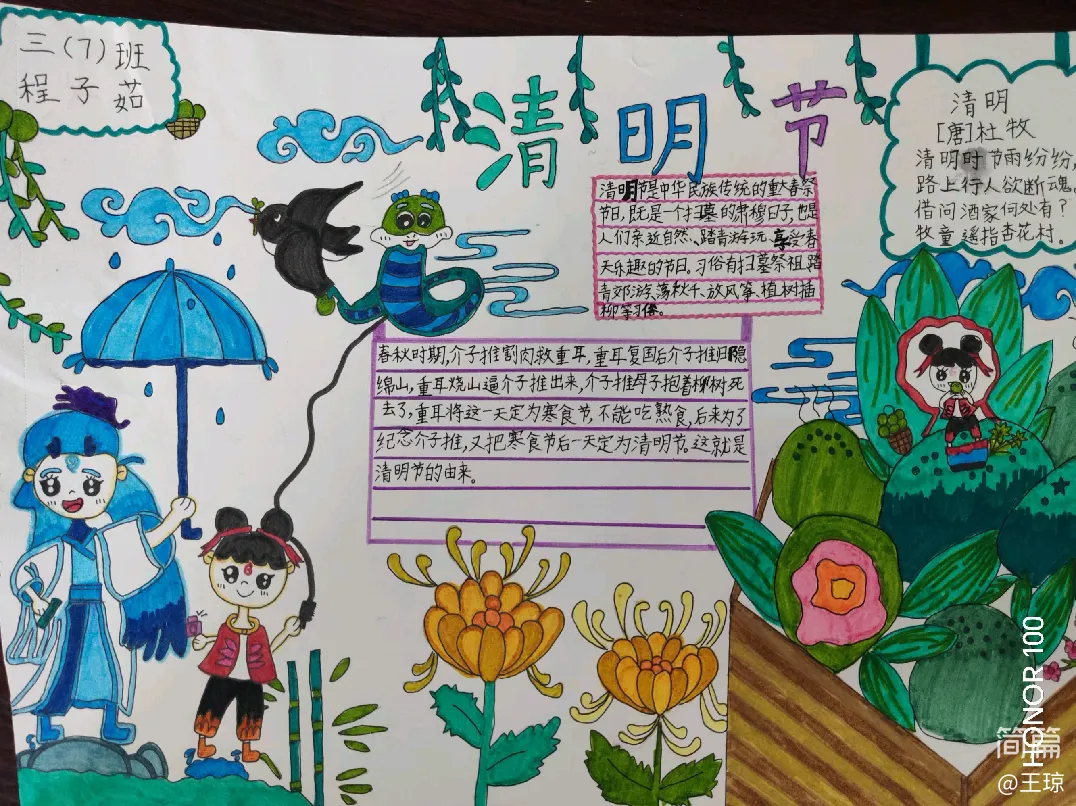 三(7)班
程子茹
清明节
清明
[唐]杜牧
清明时节雨纷纷,
路上行人欲断魂。
借问酒家何处有?
牧童遥指杏花村。
清明节是中华民族传统的重大春祭
节日,既是一个扫墓的肃穆日子,也是
人们亲近自然、踏青游玩、享受春
天乐趣的节日。习俗有扫墓祭祖、踏
青郊游、荡秋千、放风筝、植树、插
柳等习俗。
春秋时期,介子推割肉救重耳,重耳复国后介子推归隐
绵山,重耳烧山逼介子推出来,介子推母子抱着柳树死
去了,重耳将这一天定为寒食节,不能吃熟食,后来为了
纪念介子推,又把寒食节后一天定为清明节。这就是
清明节的由来。
HONOR 100
简篇
@王琼